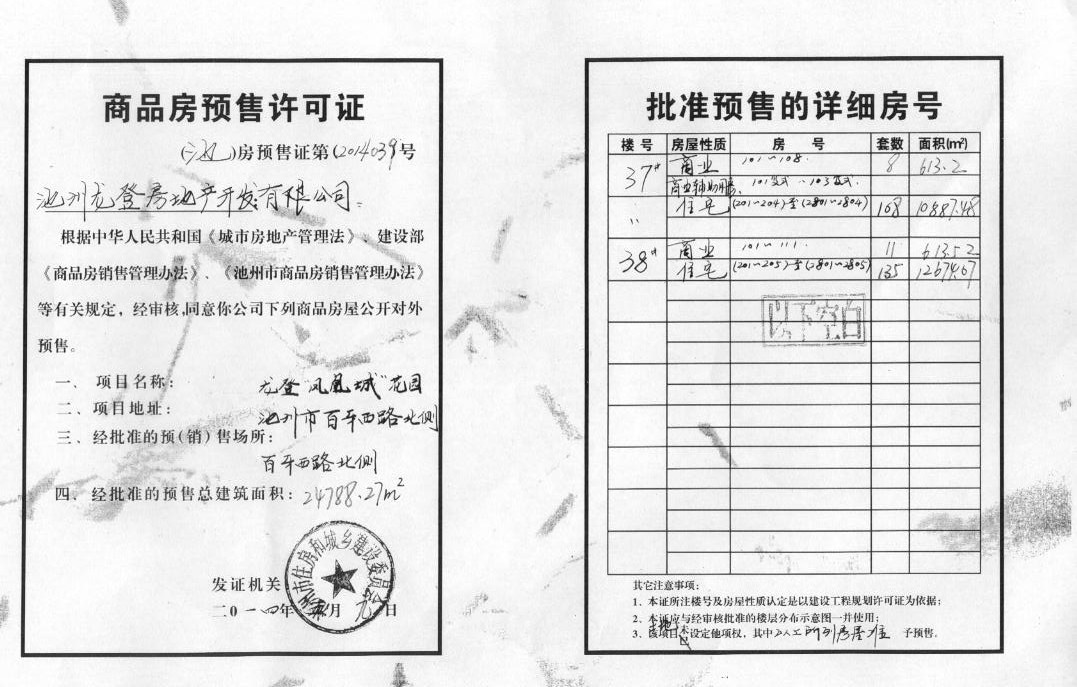 商品房预售许可证
(池)房预售证第(2014039号
池州龙登房地产开发有限公司:
根据中华人民共和国《城市房地产管理法》、建设部
《商品房销售管理办法》、《池州市商品房销售管理办法》
等有关规定，经审核,同意你公司下列商品房屋公开对外
预售。
一、项目名称： 龙登"凤凰城"花园
二、项目地址： 池州市百牙西路北侧
三、经批准的预(销)售场所:
百牙西路北侧
四、经批准的预售总建筑面积：24788.27m²
市住房和城乡建设委员会
发证机关
二0一四年 月 日
批准预售的详细房号
楼号 房屋性质 房号 套数 面积(㎡)
37# 商业 101~108. 8 613.2
商业辅助用房、
〃 住宅 (201~204)至(2801~2804) 108 10887.48
38# 商业 101~111. 11 613.52
住宅 (201~205)至(2801~2805) 135 12674.07
以下空白
其它注意事项：
1、本证所注楼号及房屋性质认定是以建设工程规划许可证为依据；
2、本证应与经审核批准的楼层分布示意图一并使用；
3、该项目土地未设定他项权，其中 予预售。